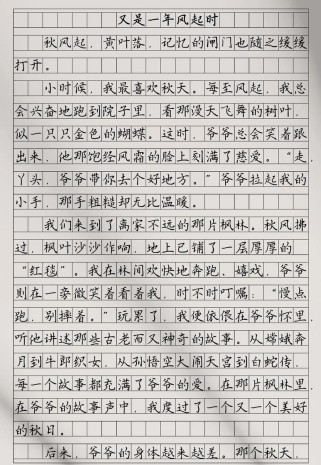 又是一年风起时
秋风起,黄叶落,记忆的闸门也随之缓缓
打开。
小时候,我最喜欢秋天。每至风起,我总
会兴奋地跑到院子里,看那漫天飞舞的树叶,
似一只只金色的蝴蝶。这时,爷爷总会笑着跟
出来,他那饱经风霜的脸上刻满了慈爱。“走,
丫头,爷爷带你去个好地方。”爷爷拉起我的
小手,那手粗糙却无比温暖。
我们来到了离家不远的那片枫林。秋风拂
过,枫叶沙沙作响,地上已铺了一层厚厚的
“红毯”。我在林间欢快地奔跑、嬉戏,爷爷
则在一旁微笑着看着我,时不时叮嘱:“慢点
跑,别摔着。”玩累了,我便依偎在爷爷怀里,
听他讲述那些古老而又神奇的故事。从嫦娥奔
月到牛郎织女,从孙悟空大闹天宫到白蛇传,
每一个故事都充满了爷爷的爱。在那片枫林里,
在爷爷的故事声中,我度过了一个又一个美好
的秋日。
后来,爷爷的身体越来越差。那个秋天,